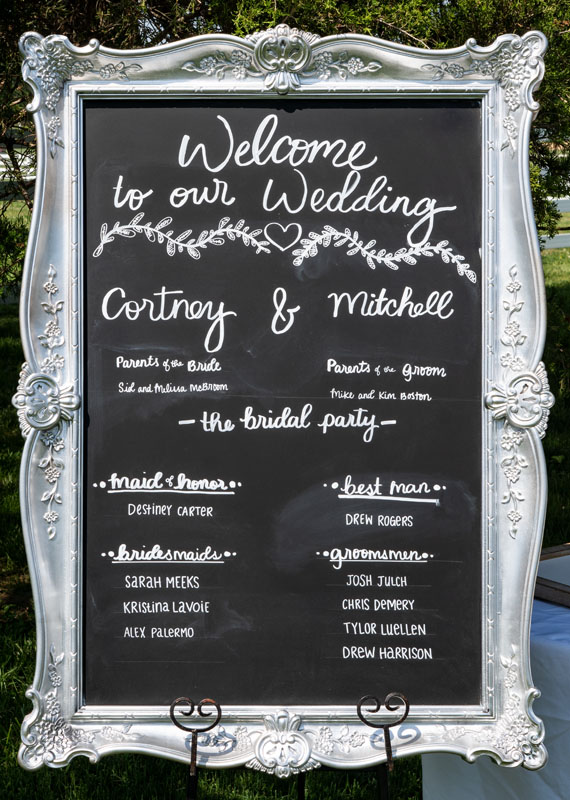 Welcome
to our Wedding
Cortney & Mitchell
Parents of the Bride
Sid and Melissa McBroom
Parents of the Groom
Mike and Kim Boston
- the bridal party -
maid of honor
Destiney Carter
best man
Drew Rogers
bridesmaids
Sarah Meeks
Kristina Lavoie
Alex Palermo
groomsmen
Josh Julch
Chris Demery
Tylor Luellen
Drew Harrison